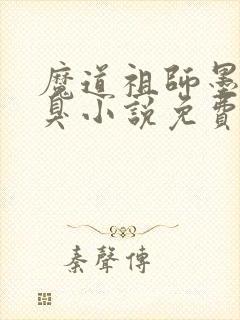 魔道祖師墨
臭小說免費
秦聲傳